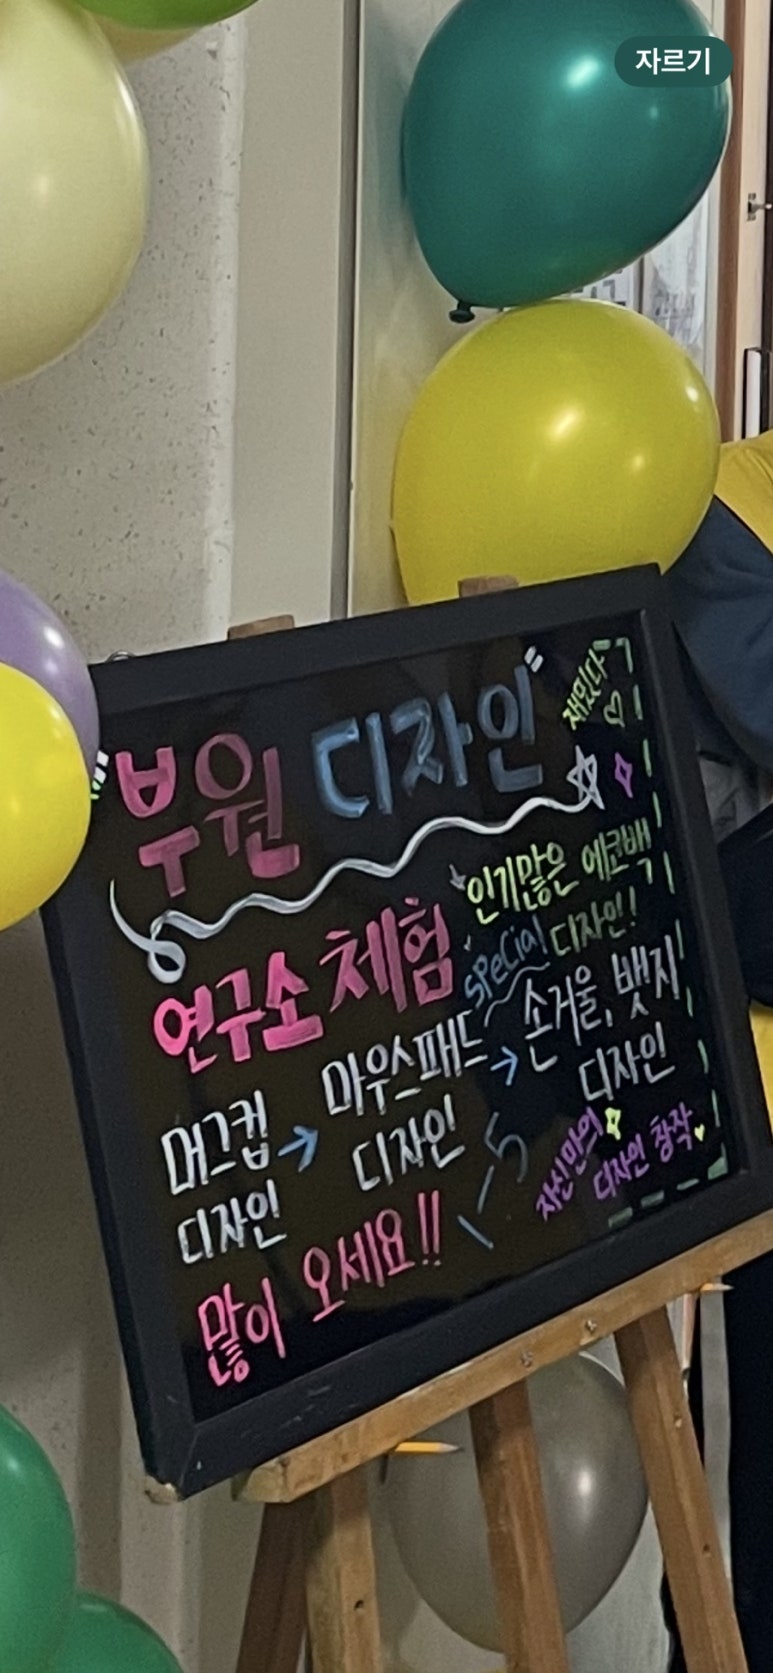 자르기
"부원 디자인"
재밌다♡
연구소 체험
인기많은 에코백
special 디자인!
머그컵 디자인 → 마우스패드 디자인 → 손거울, 뱃지 디자인
자신만의 디자인 창작
많이 오세요!!